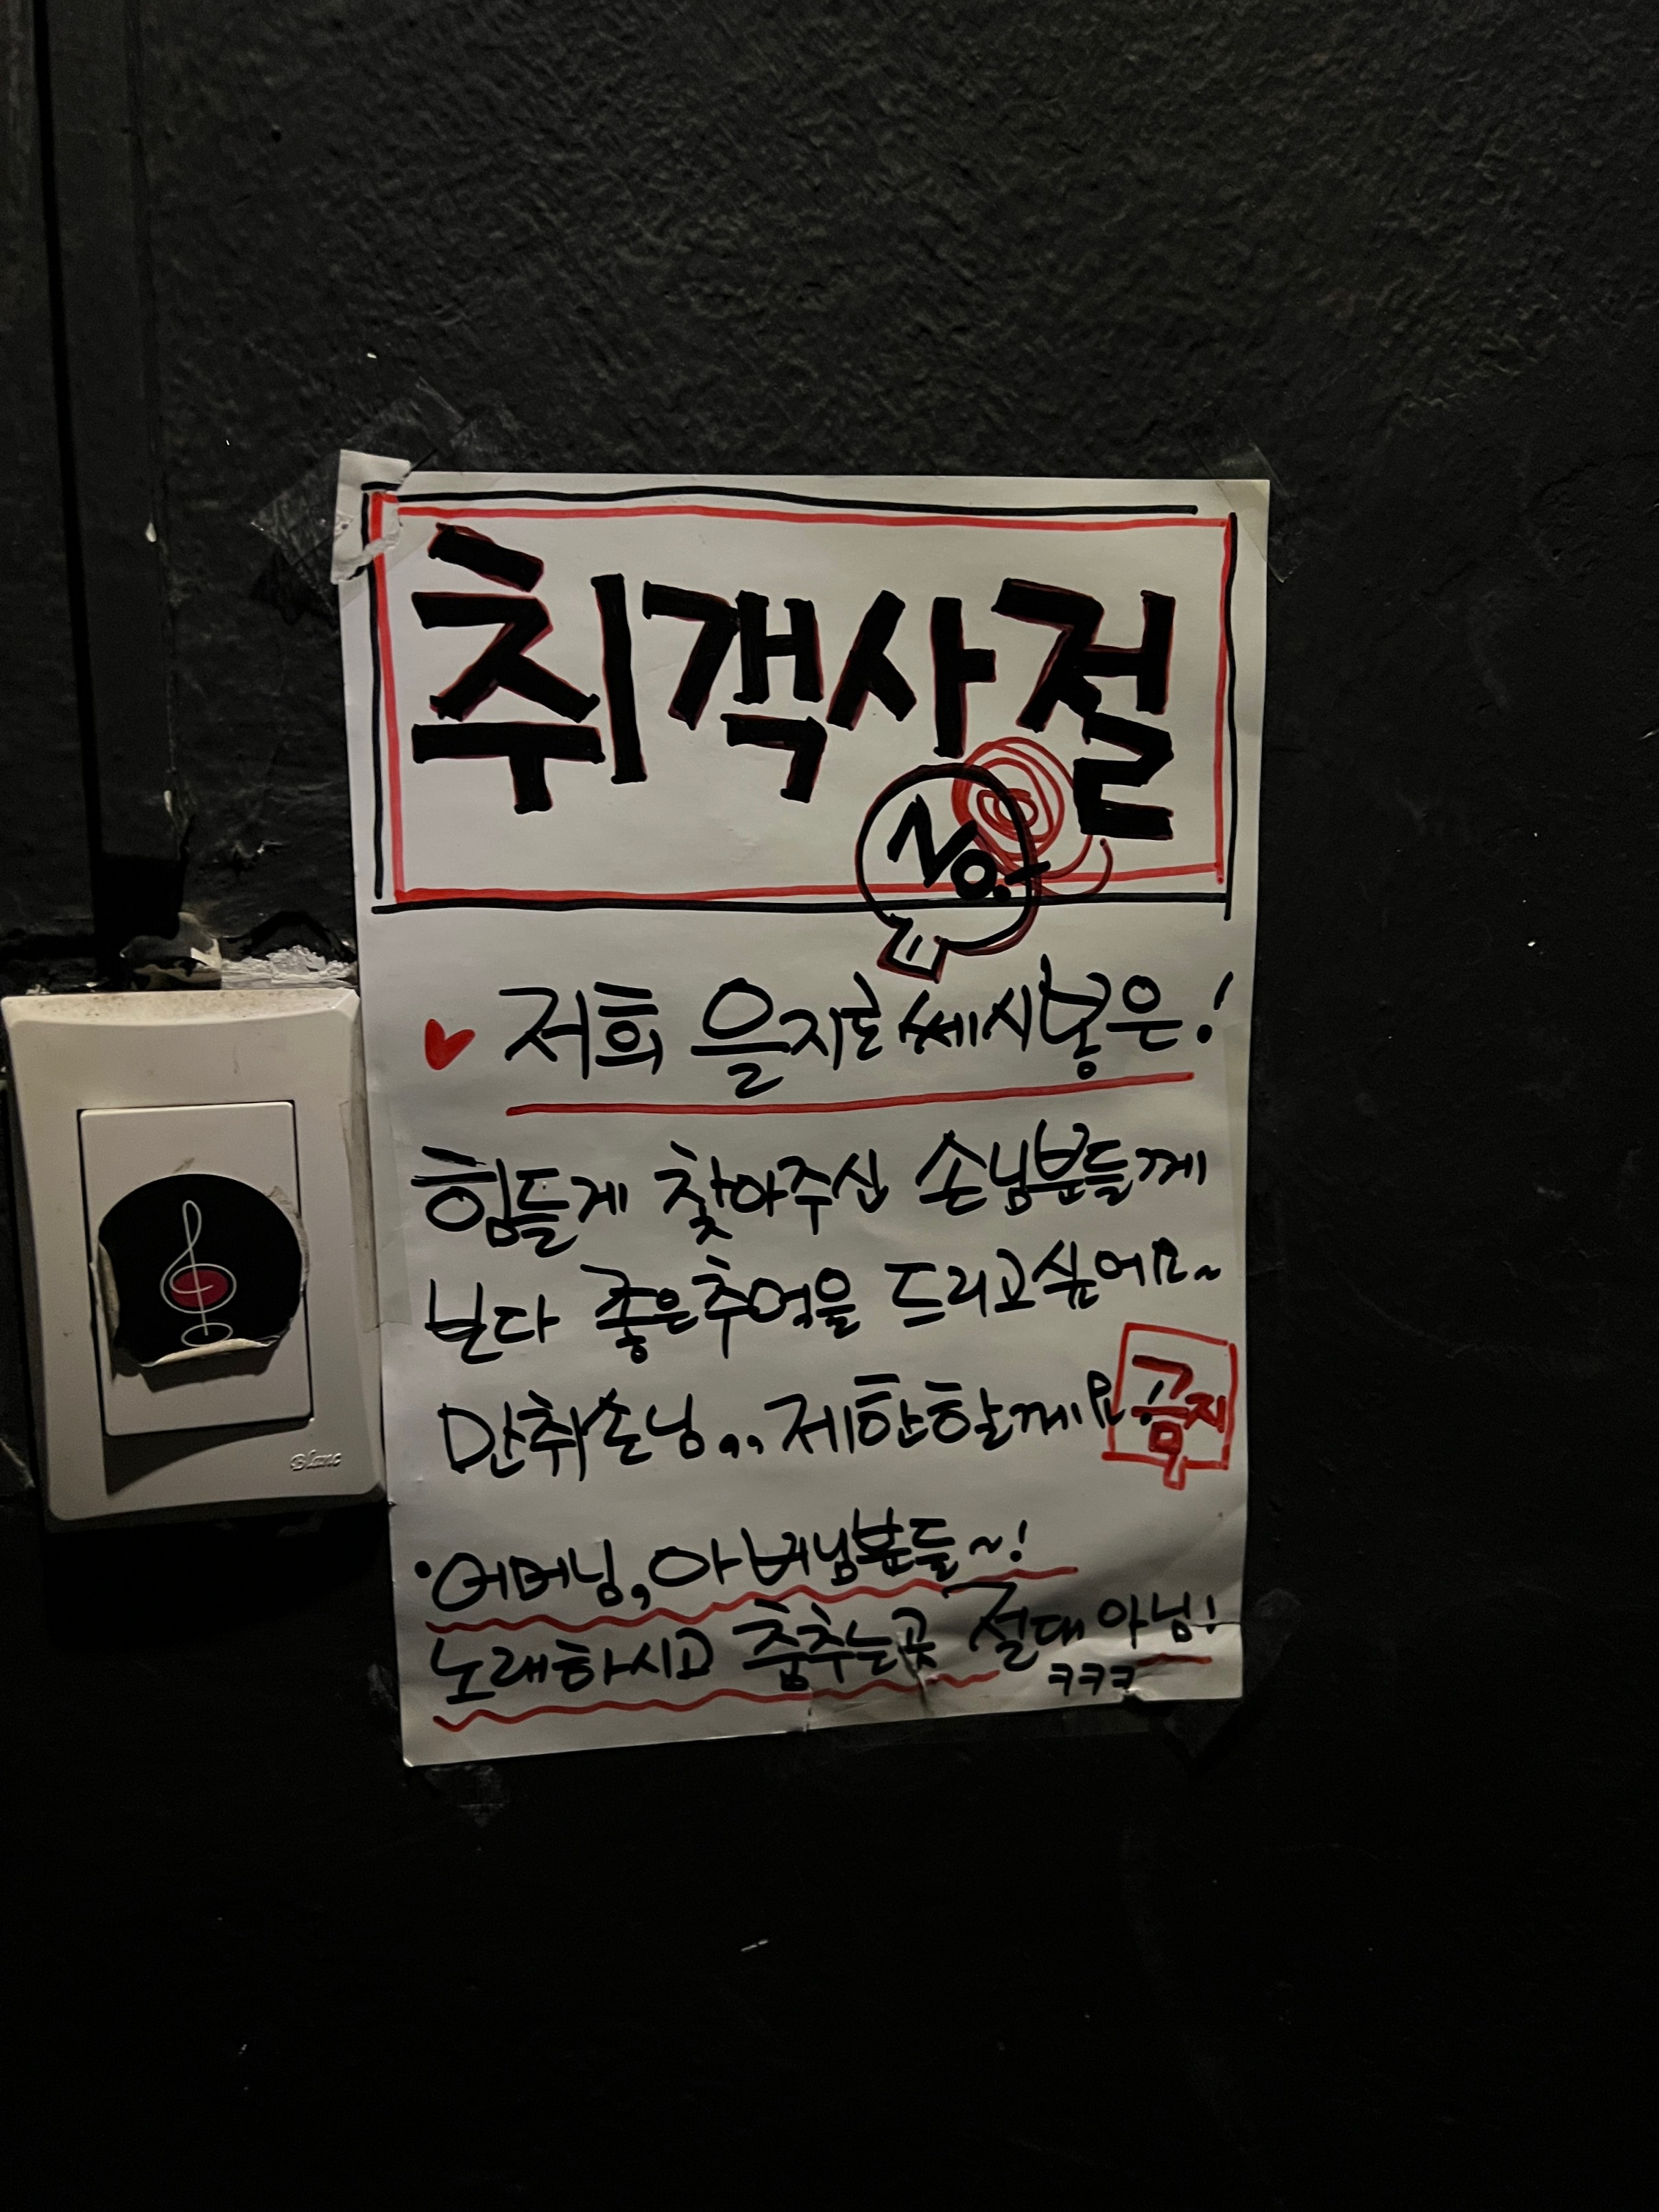 취객사절
No.
저희 을지로쎄시봉은!
힘들게 찾아주신 손님분들께
보다 좋은추억을 드리고싶어요~
만취손님,,, 제한할께요 금지
·어머님, 아버님분들~!
노래하시고 춤추는곳 절대 아님!
ㅋㅋㅋ
Blanc